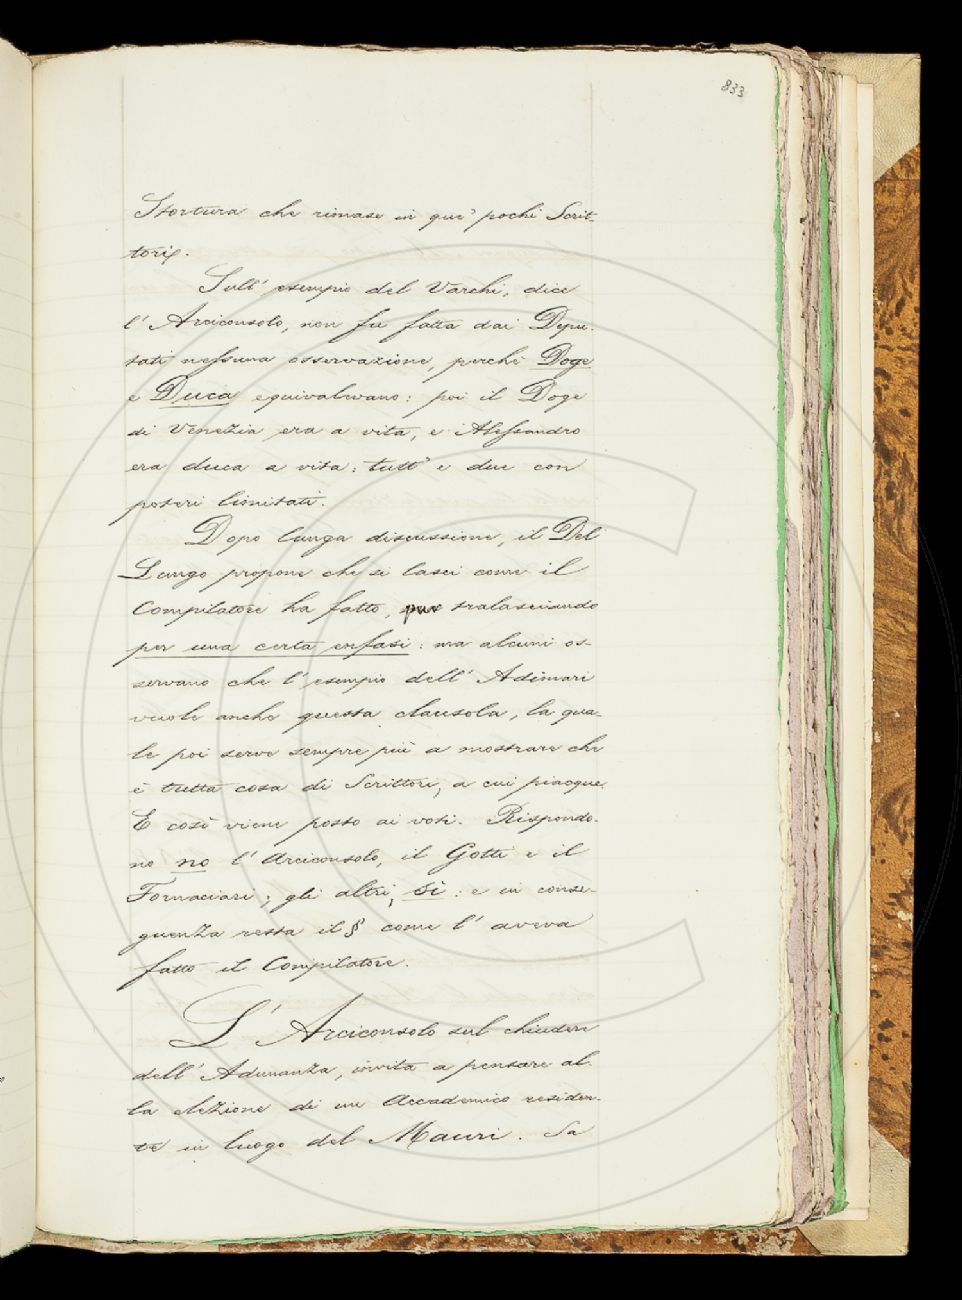 833
Stortura che rimase in que' pochi Scrit-
tori».
Sull' esempio del Varchi, dice
l' Arciconsolo, non fu fatta dai Depu-
tati nessuna osservazione, perchè Doge
e Duca equivalevano: poi il Doge
di Venezia era a vita, e Alessandro
era duca a vita: tutt' e due con
poteri limitati.
Dopo lunga discussione, il Del
Lungo propone che si lasci come il
Compilatore ha fatto, pur tralasciando
per una certa enfasi: ma alcuni os-
servano che l' esempio dell' Adimari
vuole anche questa clausola, la qua-
le poi serve sempre più a mostrare che
è tutta cosa di Scrittori, a cui piacque.
E così viene posto ai voti. Rispondo-
no no l' Arciconsolo, il Gotti e il
Fornaciari; gli altri, sì: e in conse-
guenza resta il § come l' aveva
fatto il Compilatore.
L' Arciconsolo sul chiudere
dell' Adunanza, invita a pensare al-
la elezione di un Accademico residen-
te in luogo del Mauri. Sa